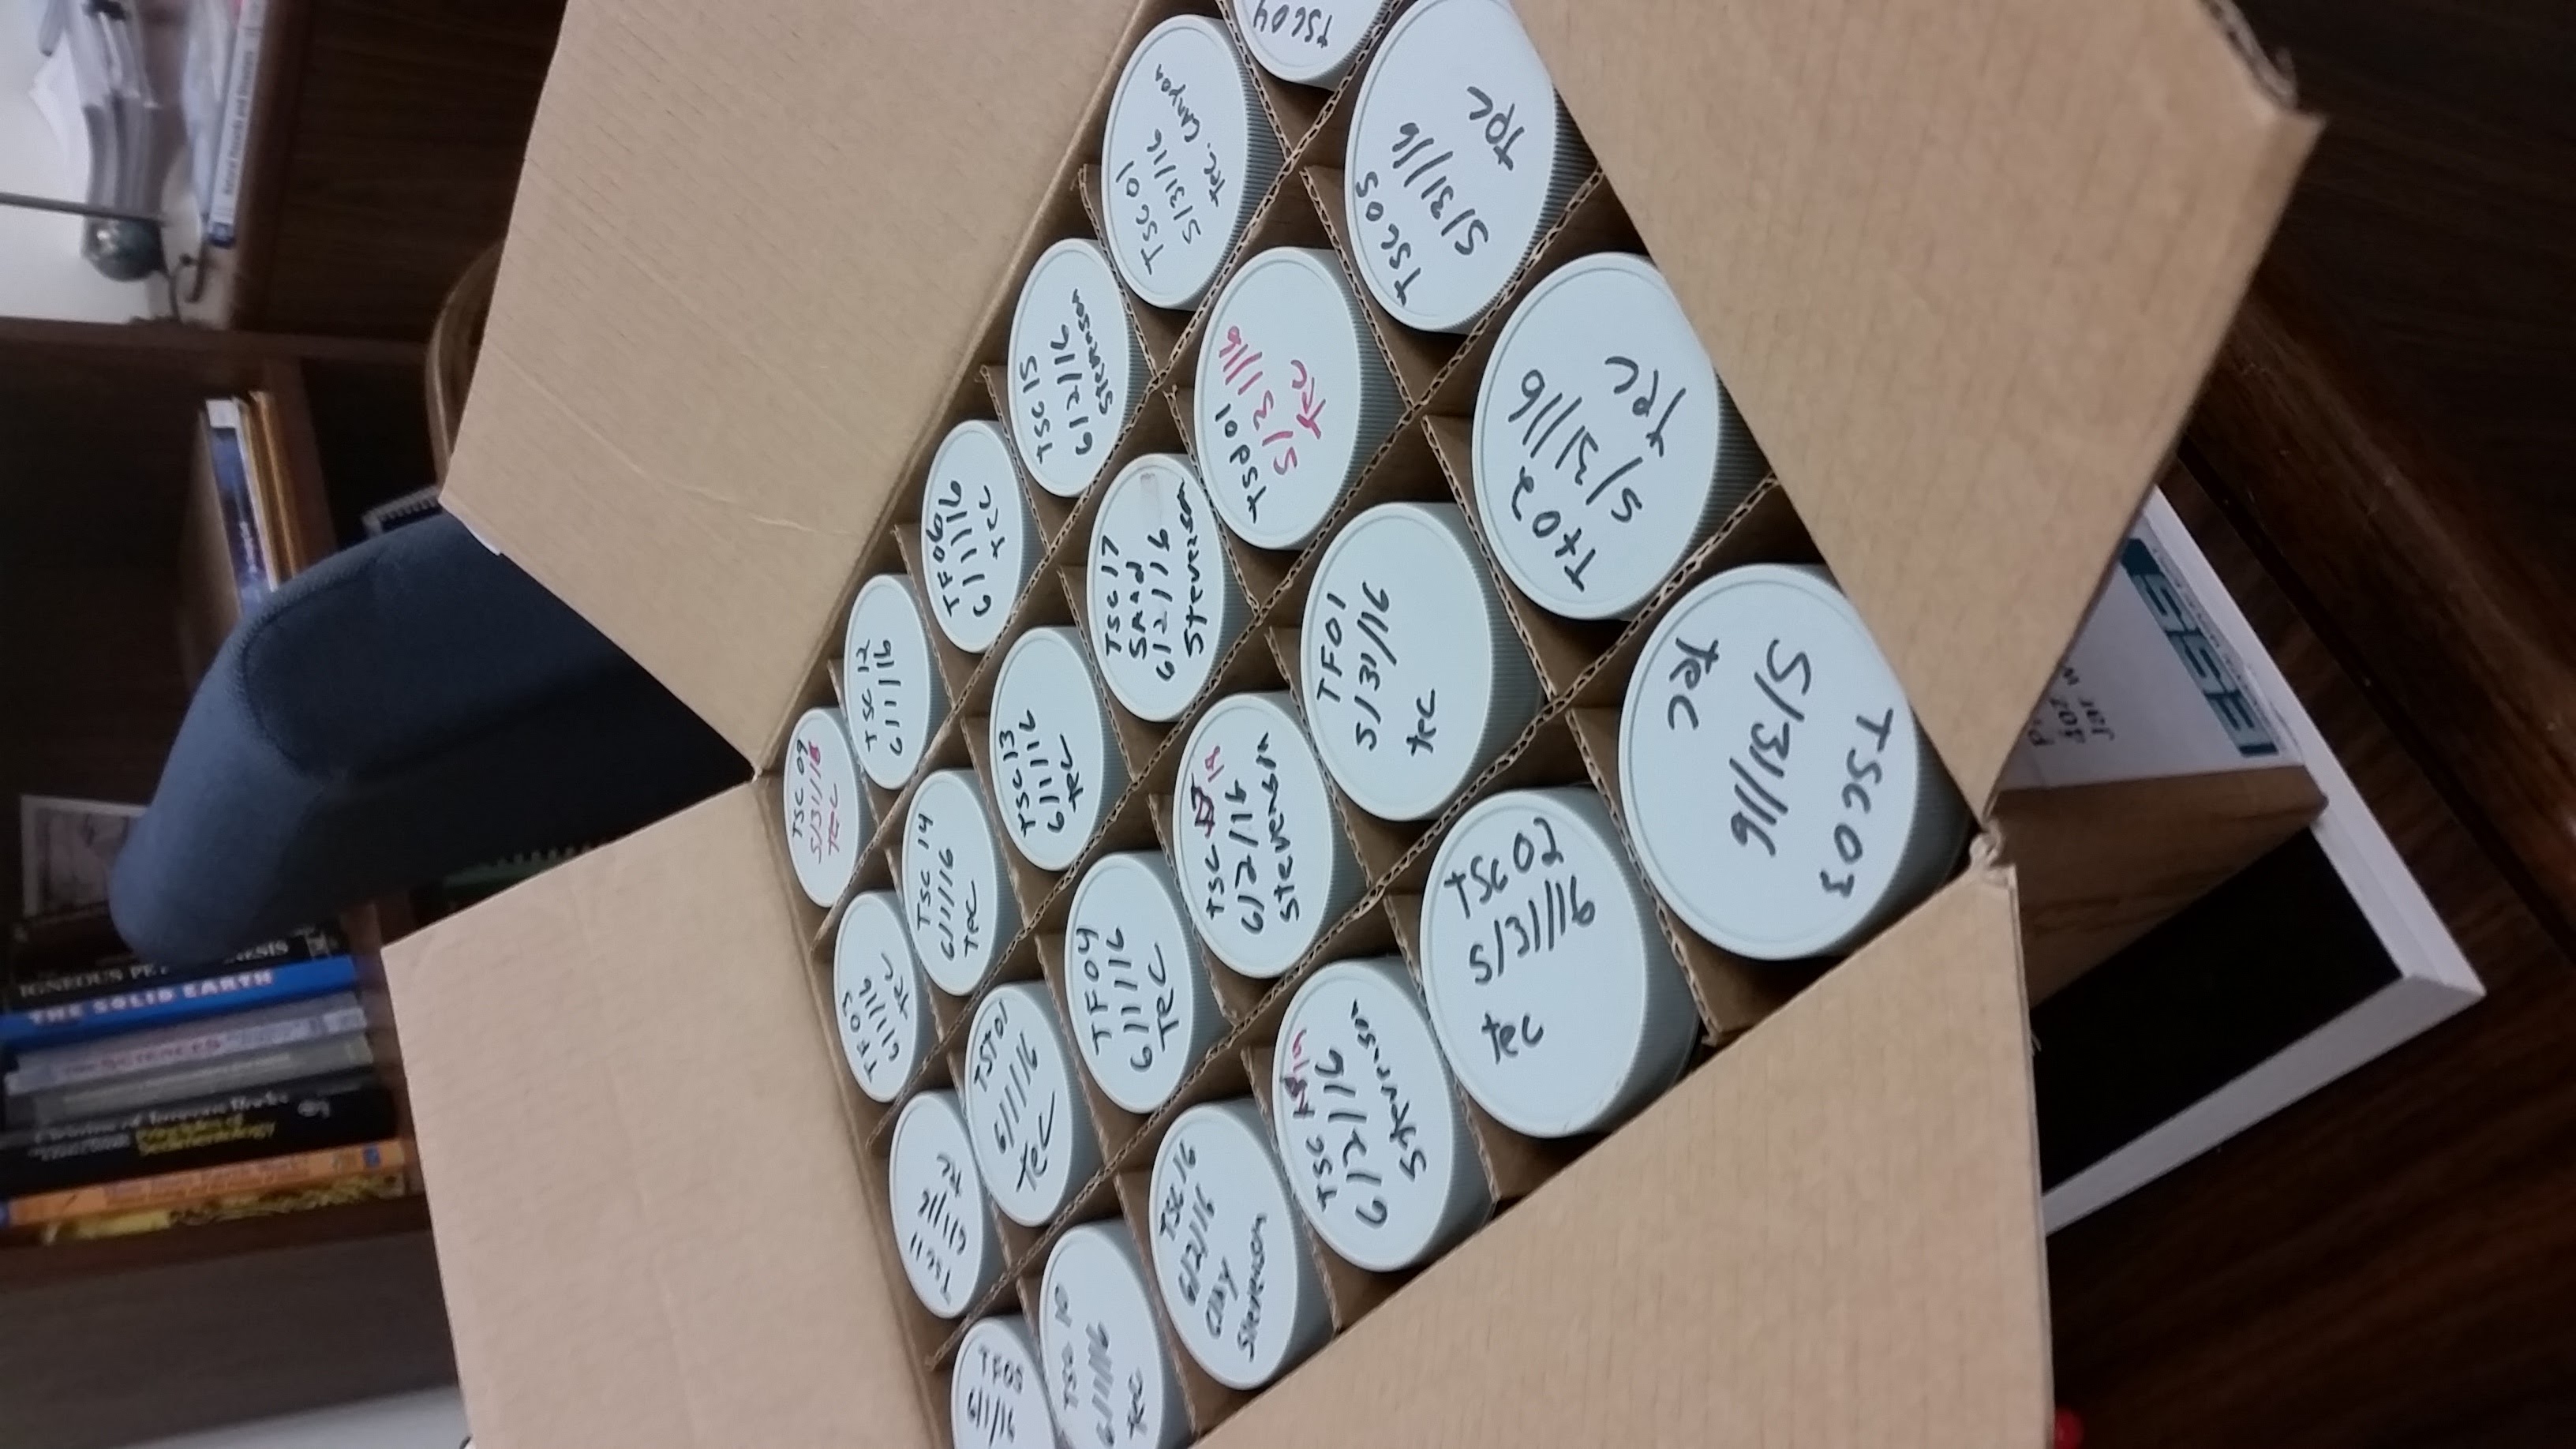 THE SOLID EARTH
Natural Hazards and Disasters
TSC 09
5/31/16
TEC
TF03
6/1/16
tec
TSC 12
6/1/16
TSC 11
6/1/16
tec
TSC 14
6/1/16
tec
TF06
6/1/16
tec
TF05
TSt01
6/1/16
tec
TSC 13
6/1/16
tec
TSC 15
6/2/16
Stevenson
TSC 10
6/1/16
tec
TF04
6/1/16
TEC
TSC 17
SAnd
6/2/16
Stevenson
TSC 01
5/31/16
tec. Canyon
TSC 16
6/2/16
Clay
Stevenson
TSC 18
6/2/16
Stevenson
TSd01
5/31/16
TEC
TSC04
TSC 19
6/2/16
Stevenson
TF01
5/31/16
tec
TSC05
5/31/16
tec
TSC02
5/31/16
tec
Tf02
5/31/16
tec
TSC03
5/31/16
tec
4oz
Jar
ESS